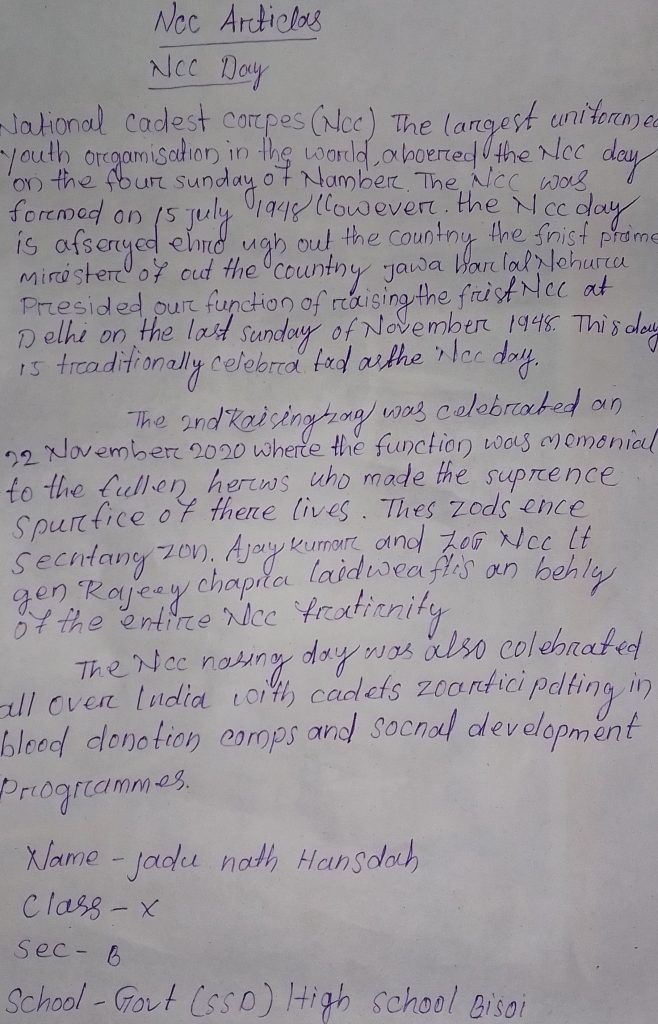 Ncc Articlas
Ncc Day
National cadest corpes (Ncc) The largest uniformed
youth orgamisation in the world, aboered the Ncc day
on the four sunday of Namber. The Ncc was
foremod on 15 july 1948 However. the Ncc day
is afseryed ehro ugh out the country the frist prame
minister of out the country jawa harlal Nehuru
Presided our function of raising the frist Ncc at
Delhi on the last sunday of November 1948. This day
is traditionally celebra tad as the Ncc day.
The 2nd Raising zag was celebrated on
22 November 2020 where the function was momonial
to the fullen herws who made the suprence
spurifice of there lives. Thes zods ence
Secntany zon. Ajay kumar and zoG Ncc lt
gen Rajeey chapra laid wea flis an behly
of the entire Ncc fratirnity
The Ncc nasing day was also colebrated
all over India with cadets zoantici patting in
blood donotion comps and socnal development
Programmes.
Name - Jadu nath Hansdah
Class - X
Sec - B
School - Govt (SSD) High school Bisoi